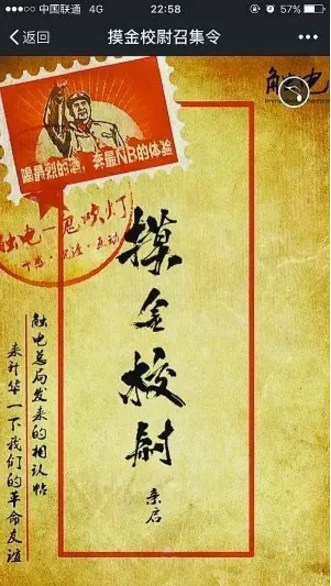 中国联通 4G 22:58 57%
返回 摸金校尉召集令
触电
喝最烈的酒，弈最NB的体
触电—鬼吹灯
摸金校尉
亲启
触电总局发来的相认帖
来升华一下我们的革命友谊